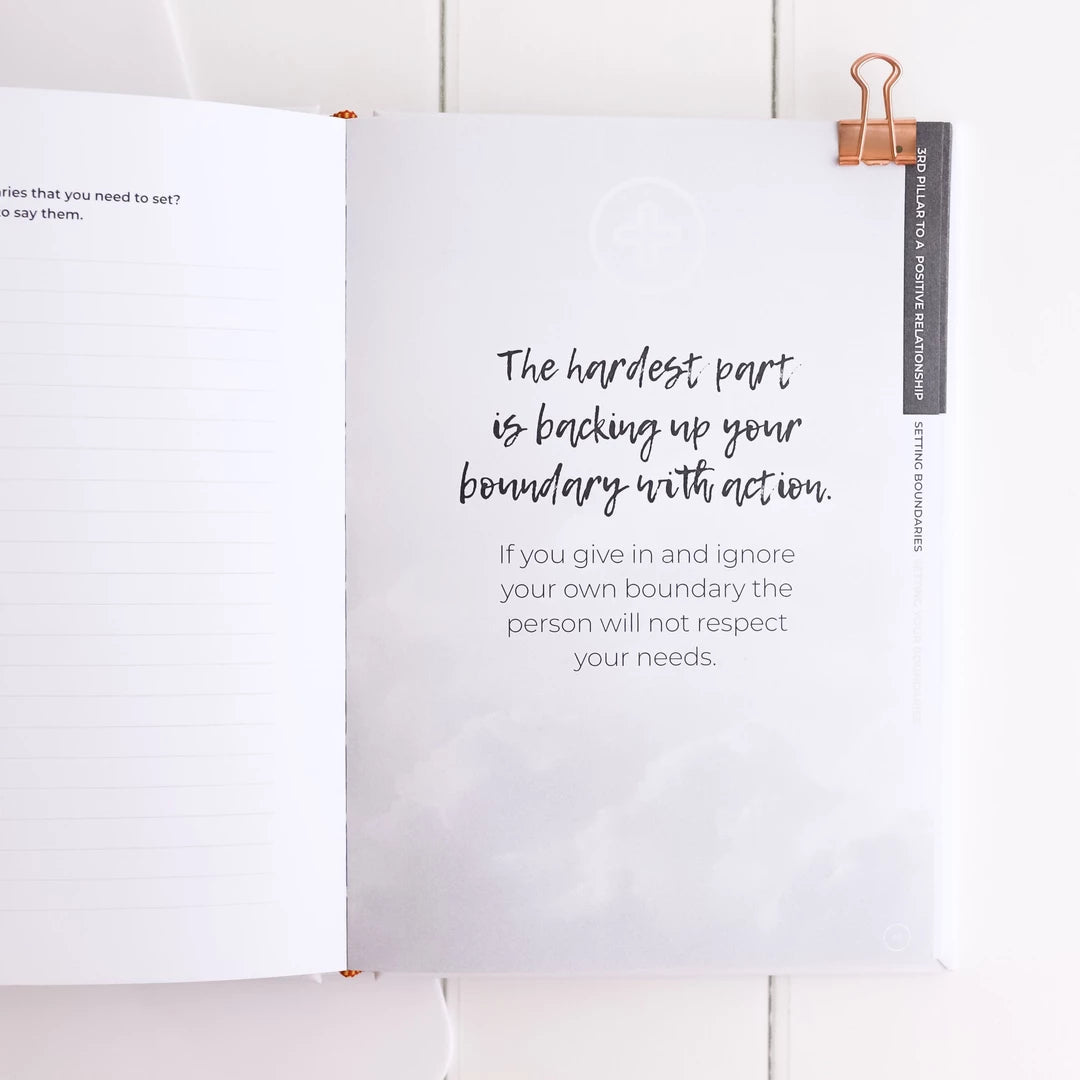 ries that you need to set?
to say them.
The hardest part
is backing up your
boundary with action.
If you give in and ignore
your own boundary the
person will not respect
your needs.
3RD PILLAR TO A POSITIVE RELATIONSHIP
SETTING BOUNDARIES